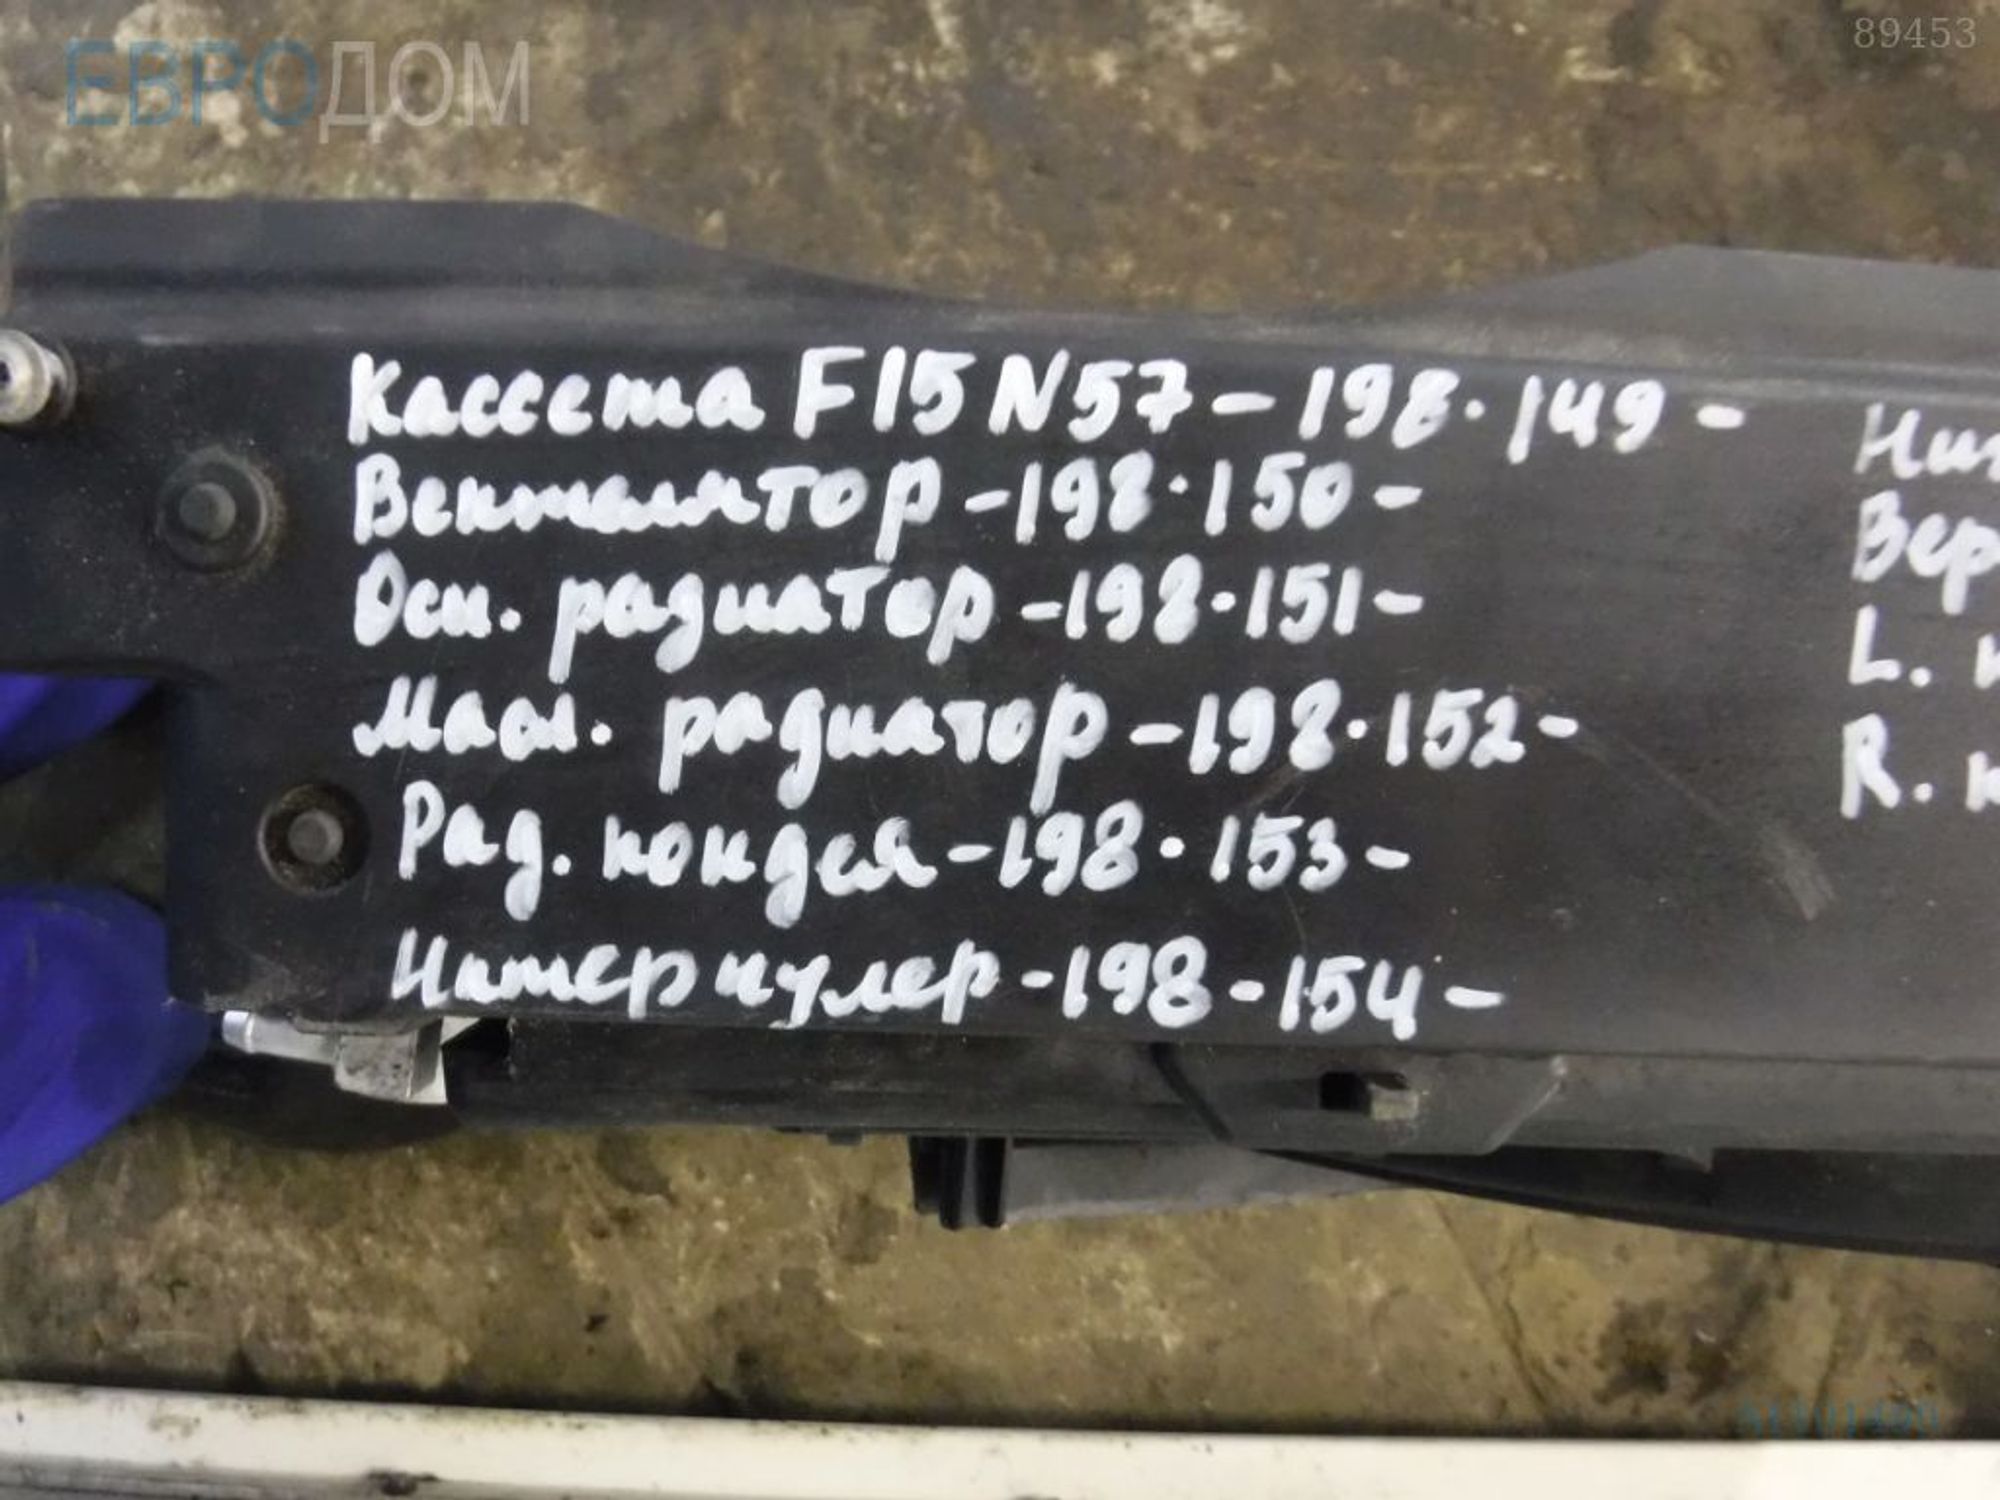 ЕВРОДОМ
89453
Кассета F15 N57 - 198·149 -
Вентилятор - 198·150 -
Осн. радиатор - 198·151 -
Масл. радиатор - 198·152 -
Рад. кондея - 198·153 -
Интеркулер - 198 - 154 -
Ниж
Вер
L. к
R. к